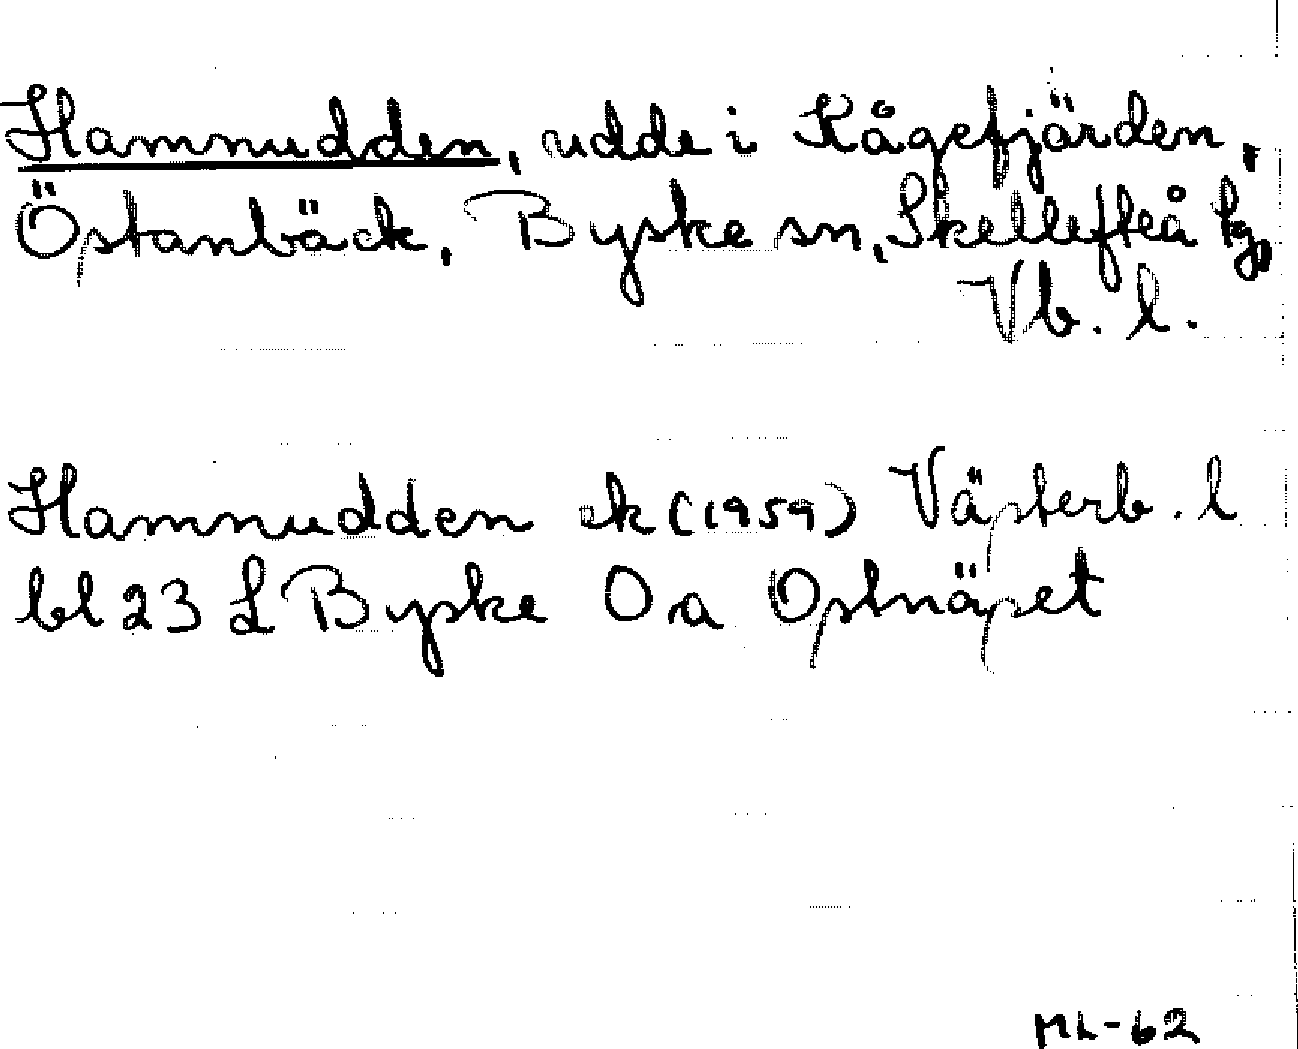 Hamnudden, udde i Kågefjärden,
Östanbäck, Byske sn, Skellefteå tg,
Vb. l.
Hamnudden ek (1959) Västerb. l
bl 23 L Byske O a Ostnäset
ML-62